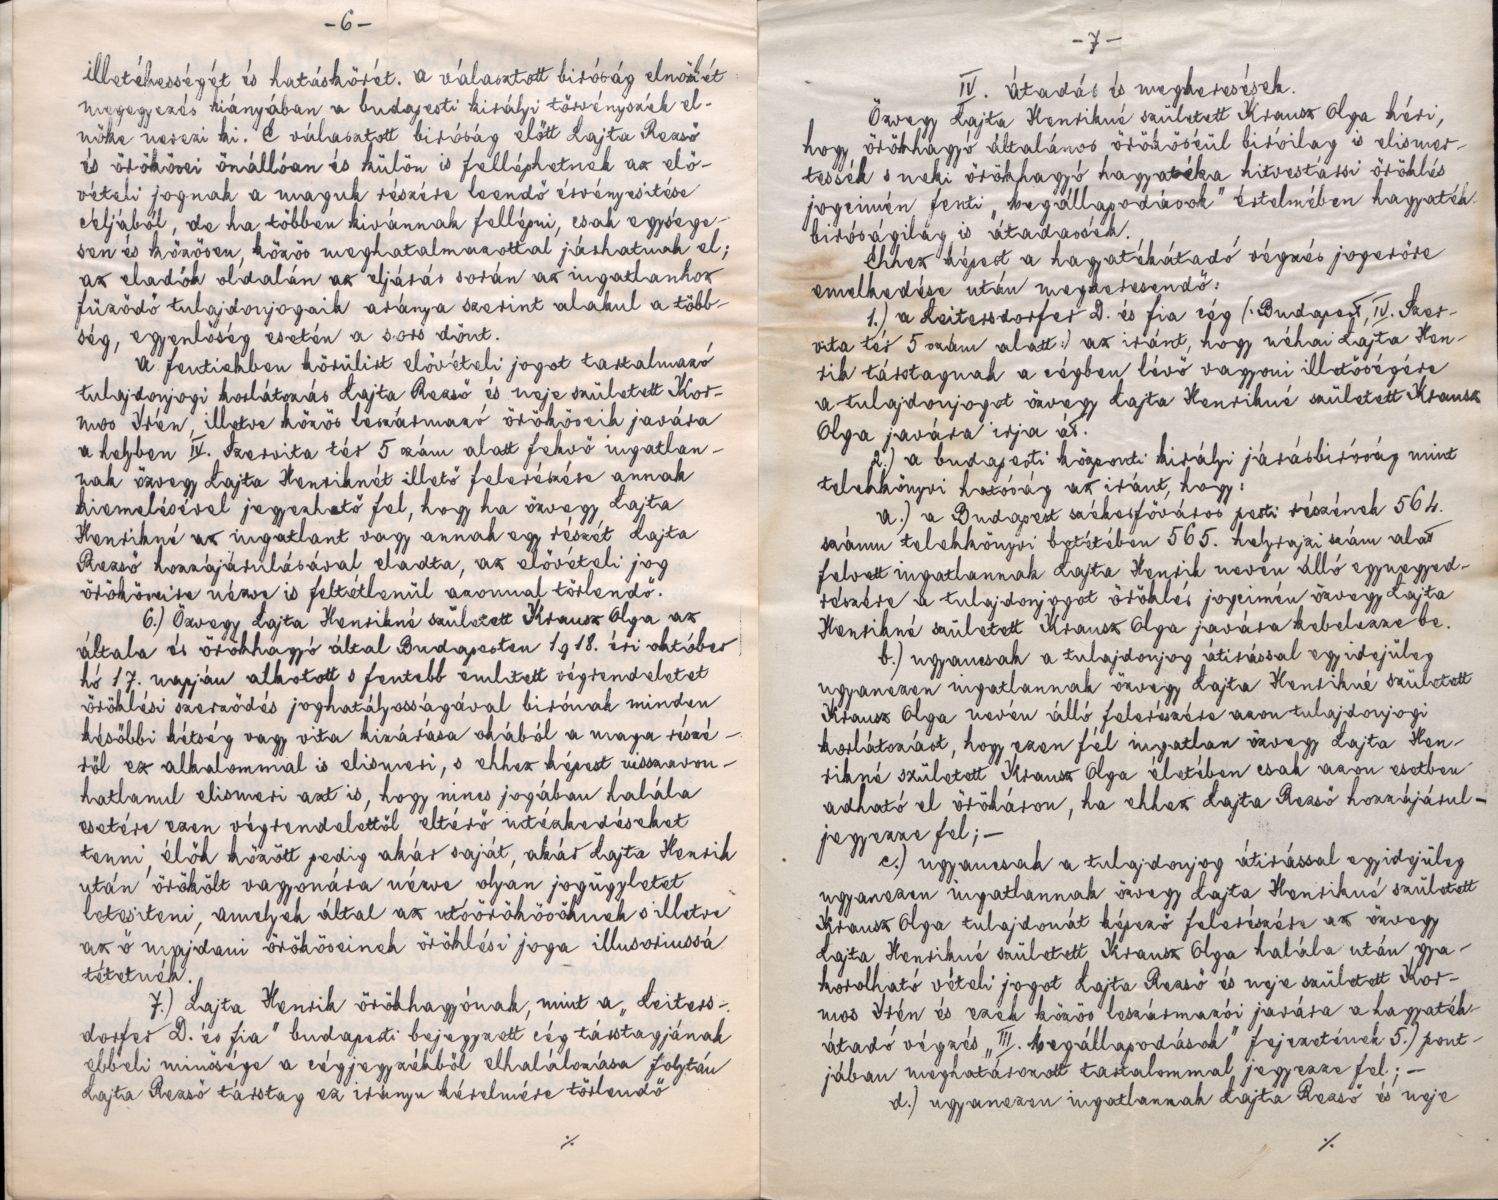 -6-
illetékességét és hatáskörét. A választott biróság elnökét
megegyezés hiányában a budapesti királyi törvényszék el-
nöke nevezi ki. E választott biróság előtt Lajta Rezső
és örökösei önállóan és külön is felléphetnek az elő-
vételi jognak a maguk részére leendő érvényesitése
céljából, de ha többen kivánnak fellépni, csak egysége-
sen és közösen, közös meghatalmazottal járhatnak el;
az eladók oldalán az eljárás során az ingatlanhoz
füződő tulajdonjogaik aránya szerint alakul a több-
ség, egyenlőség esetén a sors dönt.
A fentiekben körülirt elővételi jogot tartalmazó
tulajdonjogi korlátozás Lajta Rezső és neje született Kor-
mos Irén, illetve közös leszármazó örököseik javára
a helyben IV. Szervita tér 5 szám alatt fekvő ingatlan-
nak özvegy Lajta Henriknét illető felerészére annak
kiemelésével jegyezhető fel, hogy ha özvegy Lajta
Henrikné az ingatlant vagy annak egy részét Lajta
Rezső hozzájárulásával eladta, az elővételi jog
örököseire nézve is feltétlenül azonnal törlendő.
6.) Özvegy Lajta Henrikné született Krausz Olga az
általa és örökhagyó által Budapesten 1918. évi október
hó 17. napján alkotott s fentebb emlitett végrendeletet
öröklési szerződés joghatályosságával birónak minden
későbbi kétség vagy vita kizárása okából a maga részé-
ről ez alkalommal is elismeri, s ehhez képest visszavon-
hatlanul elismeri azt is, hogy nincs jogában halála
esetére ezen végrendelettől eltérő intézkedéseket
tenni, élők között pedig akár saját, akár Lajta Henrik
után örökölt vagyonára nézve olyan jogügyletet
létesiteni, amelyek által az utóörökösöknek s illetve
az ő majdani örököseinek öröklési joga illusoriussá
tétetnék.
7.) Lajta Henrik örökhagyónak, mint a „Leiters-
dorfer D. és fia" budapesti bejegyzett cég társtagjának
ebbeli minősége a cégjegyzékből elhalálozása folytán
Lajta Rezső társtag ez irányu kérelmére törlendő
./.
-7-
IV. Átadás és megkeresések.
Özvegy Lajta Henrikné született Krausz Olga kéri,
hogy örökhagyó általános örököséül biróilag is elismer-
tessék s neki örökhagyó hagyatéka hitvestársi öröklés
jogcimén fenti „Megállapodások" értelmében hagyaték
biróságilag is átadassék.
Ehhez képest a hagyatékátadó végzés jogerőre
emelkedése után megkeresendő:
1.) a Leitersdorfer D. és fia cég (:Budapest, IV. Szer-
vita tér 5 szám alatt:) az iránt, hogy néhai Lajta Hen-
rik társtagnak a cégben lévő vagyoni illetőségére
a tulajdonjogot özvegy Lajta Henrikné született Krausz
Olga javára irja át.
2.) a budapesti központi királyi járásbiróság mint
telekkönyvi hatóság az iránt, hogy:
a.) a Budapest székesfőváros pesti részének 564.
számu telekkönyvi betétében 565. helyrajzi szám alatt
felvett ingatlannak Lajta Henrik nevén álló egynegyed-
részére a tulajdonjogot öröklés jogcimén özvegy Lajta
Henrikné született Krausz Olga javára kebelezze be.
b.) ugyancsak a tulajdonjog átirással egyidejüleg
ugyanezen ingatlannak özvegy Lajta Henrikné született
Krausz Olga nevén álló felerészére azon tulajdonjogi
korlátozást, hogy ezen fél ingatlan özvegy Lajta Hen-
rikné született Krausz Olga életében csak azon esetben
adható el örökáron, ha ehhez Lajta Rezső hozzájárul-
jegyezze fel;-
c.) ugyancsak a tulajdonjog átirással egyidejüleg
ugyanezen ingatlannak özvegy Lajta Henrikné született
Krausz Olga tulajdonát képező felerészére az özvegy
Lajta Henrikné született Krausz Olga halála után gya-
korolható vételi jogot Lajta Rezső és neje született Kor-
mos Irén és ezek közös leszármazói javára a hagyaték-
átadó végzés „III. Megállapodások" fejezetének 5.) pont-
jában meghatározott tartalommal jegyezze fel;-
d.) ugyanezen ingatlannak Lajta Rezső és neje
./.